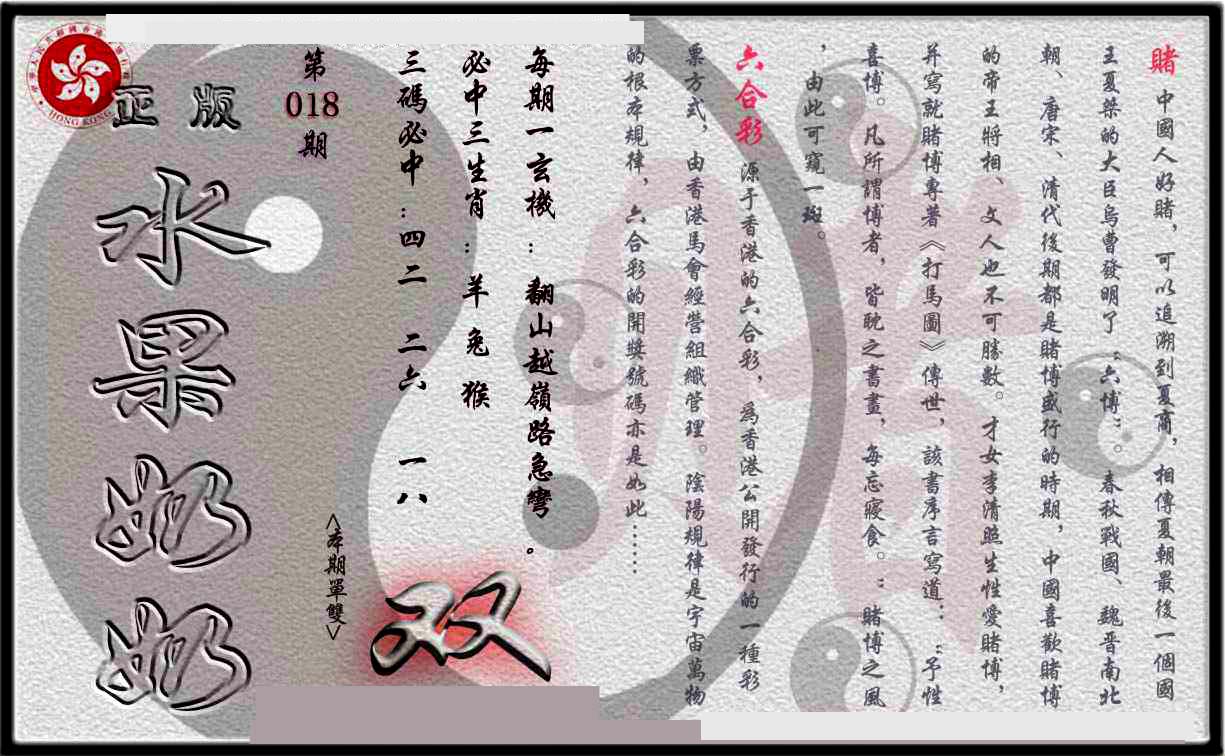 賭 中國人好賭，可以追溯到夏商，相傳夏朝最後一個國
王夏桀的大臣烏曹發明了“六博”。春秋戰國、魏晋南北
朝、唐宋、清代後期都是賭博盛行的時期，中國喜歡賭博
的帝王將相、文人也不可勝數。才女李清照生性愛賭博，
并寫就賭博專著《打馬圖》傳世，該書序言寫道：“予性
喜博。凡所謂博者，皆耽之書畫，每忘寢食。”賭博之風
，由此可窺一斑。
六合彩 源于香港的六合彩，爲香港公開發行的一種彩
票方式，由香港馬會經營組織管理。陰陽規律是宇宙萬物
的根本規律，六合彩的開獎號碼亦是如此……
每期一玄機：翻山越嶺路急彎。
必中三生肖：羊兔猴
三碼必中：四二 二六 一八
<本期單雙>
双
第
018
期
正版
水果奶奶
HONG KONG